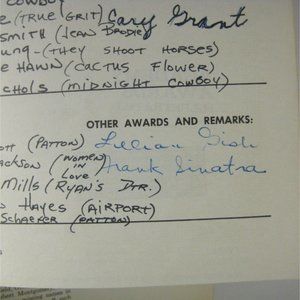 COWBOY
(TRUE GRIT) Cary Grant
SMITH (JEAN BRODIE)
UNG - (THEY SHOOT HORSES)
E HAWN (CACTUS FLOWER)
CHOLS (MIDNIGHT COWBOY)
OTHER AWARDS AND REMARKS:
OTT (PATTON) Lillian Gish
ACKSON (WOMEN IN LOVE) Frank Sinatra
MILLS (RYAN'S DTR.)
HAYES (AIRPORT)
SCHAEFER (PATTON)